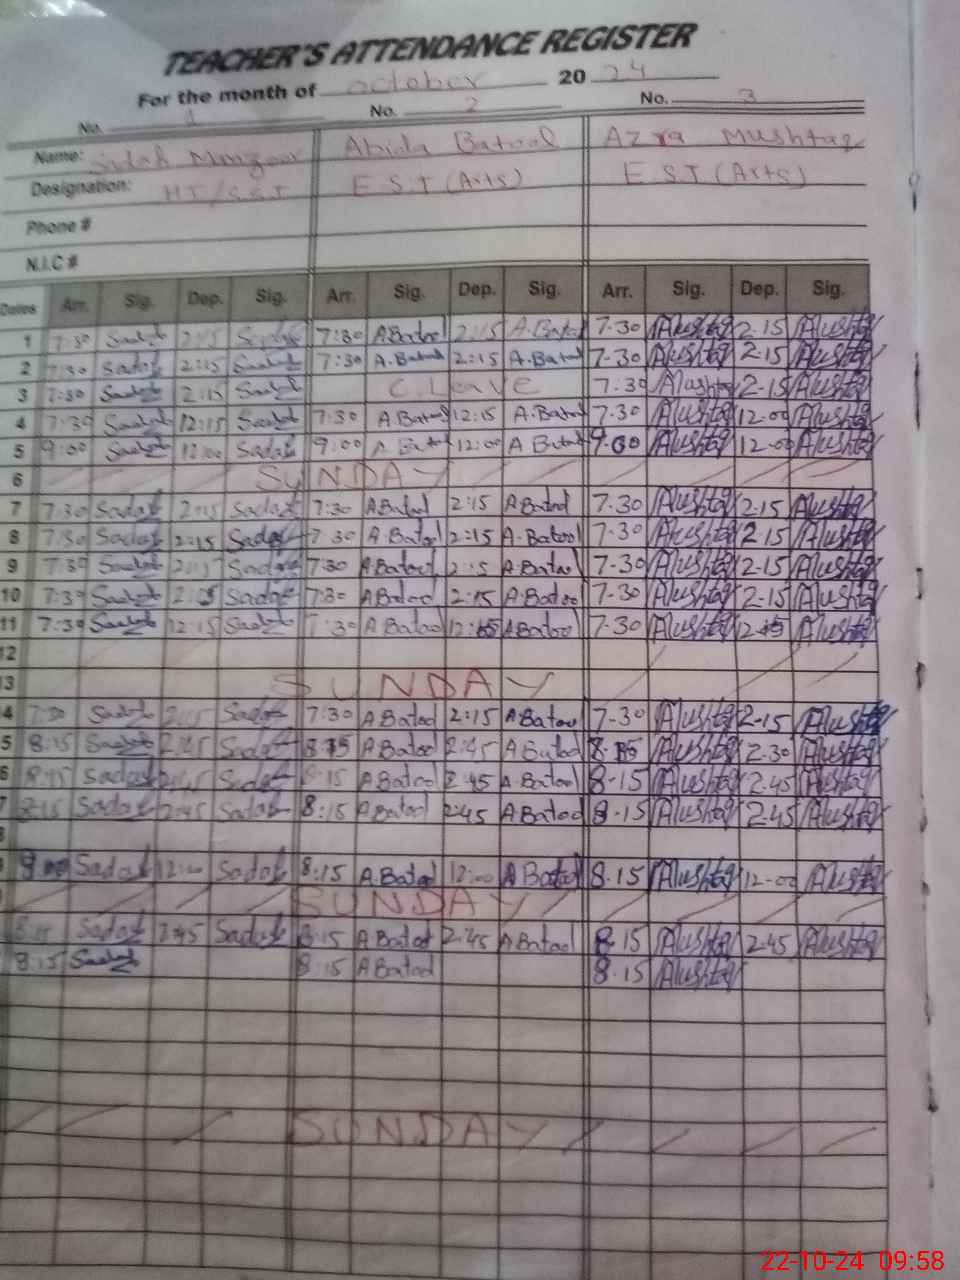 TEACHER'S ATTENDANCE REGISTER
For the month of October 20 24
No. 1 No. 2 No. 3
Name: Sadaf Manzoor Abida Batool Azra Mushtaq
Designation: HT/S.S.T E.S.T (Arts) E.S.T (Arts)
Phone #
N.I.C #
Dates Arr. Sig. Dep. Sig. Arr. Sig. Dep. Sig. Arr. Sig. Dep. Sig.
1 7:30 Sadaf 2:15 Sadaf 7:30 A.Batool 2:15 A.Batool 7-30 AMushtaq 2-15 AMushtaq
2 7:30 Sadaf 2:15 Sadaf 7:30 A.Batool 2:15 A.Batool 7-30 AMushtaq 2-15 AMushtaq
3 7:30 Sadaf 2:15 Sadaf C.Leave 7:30 AMushtaq 2-15 AMushtaq
4 7:30 Sadaf 12:15 Sadaf 7:30 A.Batool 12:15 A.Batool 7-30 AMushtaq 12-00 AMushtaq
5 9:00 Sadaf 12:00 Sadaf 9:00 A Batool 12:00 A Batool 9.00 AMushtaq 12-00 AMushtaq
6 SUNDAY
7 7:30 Sadaf 2:15 Sadaf 7:30 A.Batool 2:15 A.Batool 7-30 AMushtaq 2-15 AMushtaq
8 7:30 Sadaf 2:15 Sadaf 7 30 A.Batool 2:15 A.Batool 7-30 AMushtaq 2-15 AMushtaq
9 7:30 Sadaf Sadaf 7:30 A.Batool 2:15 A.Batool 7-30 AMushtaq 2-15 AMushtaq
10 7:30 Sadaf 2:15 Sadaf 7:30 A.Batool 2:15 A.Batool 7-30 AMushtaq 2-15 AMushtaq
11 7:30 Sadaf 12:15 Sadaf 7:30 A Batool A Batool 7-30 AMushtaq AMushtaq
12
13 SUNDAY
4 7:30 Sadaf 2:15 Sadaf 7:30 A Batool 2:15 A.Batool 7-30 AMushtaq 2-15 AMushtaq
5 8:15 Sadaf 2:45 Sadaf A Batool 2:45 A Batool AMushtaq 2.30 AMushtaq
6 8:15 Sadaf 2:45 Sadaf 8:15 A Batool 2:45 A.Batool 8-15 AMushtaq 2.45 AMushtaq
7 8:15 Sadaf 2:45 Sadaf 8:15 A Batool 2:45 A Batool 8-15 AMushtaq 2.45 AMushtaq
8
Sadaf 12:00 Sadaf 8:15 A.Batool 12:00 A Batool 8.15 AMushtaq 12-00 AMushtaq
SUNDAY
8:15 Sadaf 2:45 Sadaf 8:15 A Batool 2:45 A Batool 8 15 AMushtaq 2.45 AMushtaq
8:15 Sadaf 8:15 A Batool 8.15 AMushtaq
SUNDAY
22-10-24 09:58